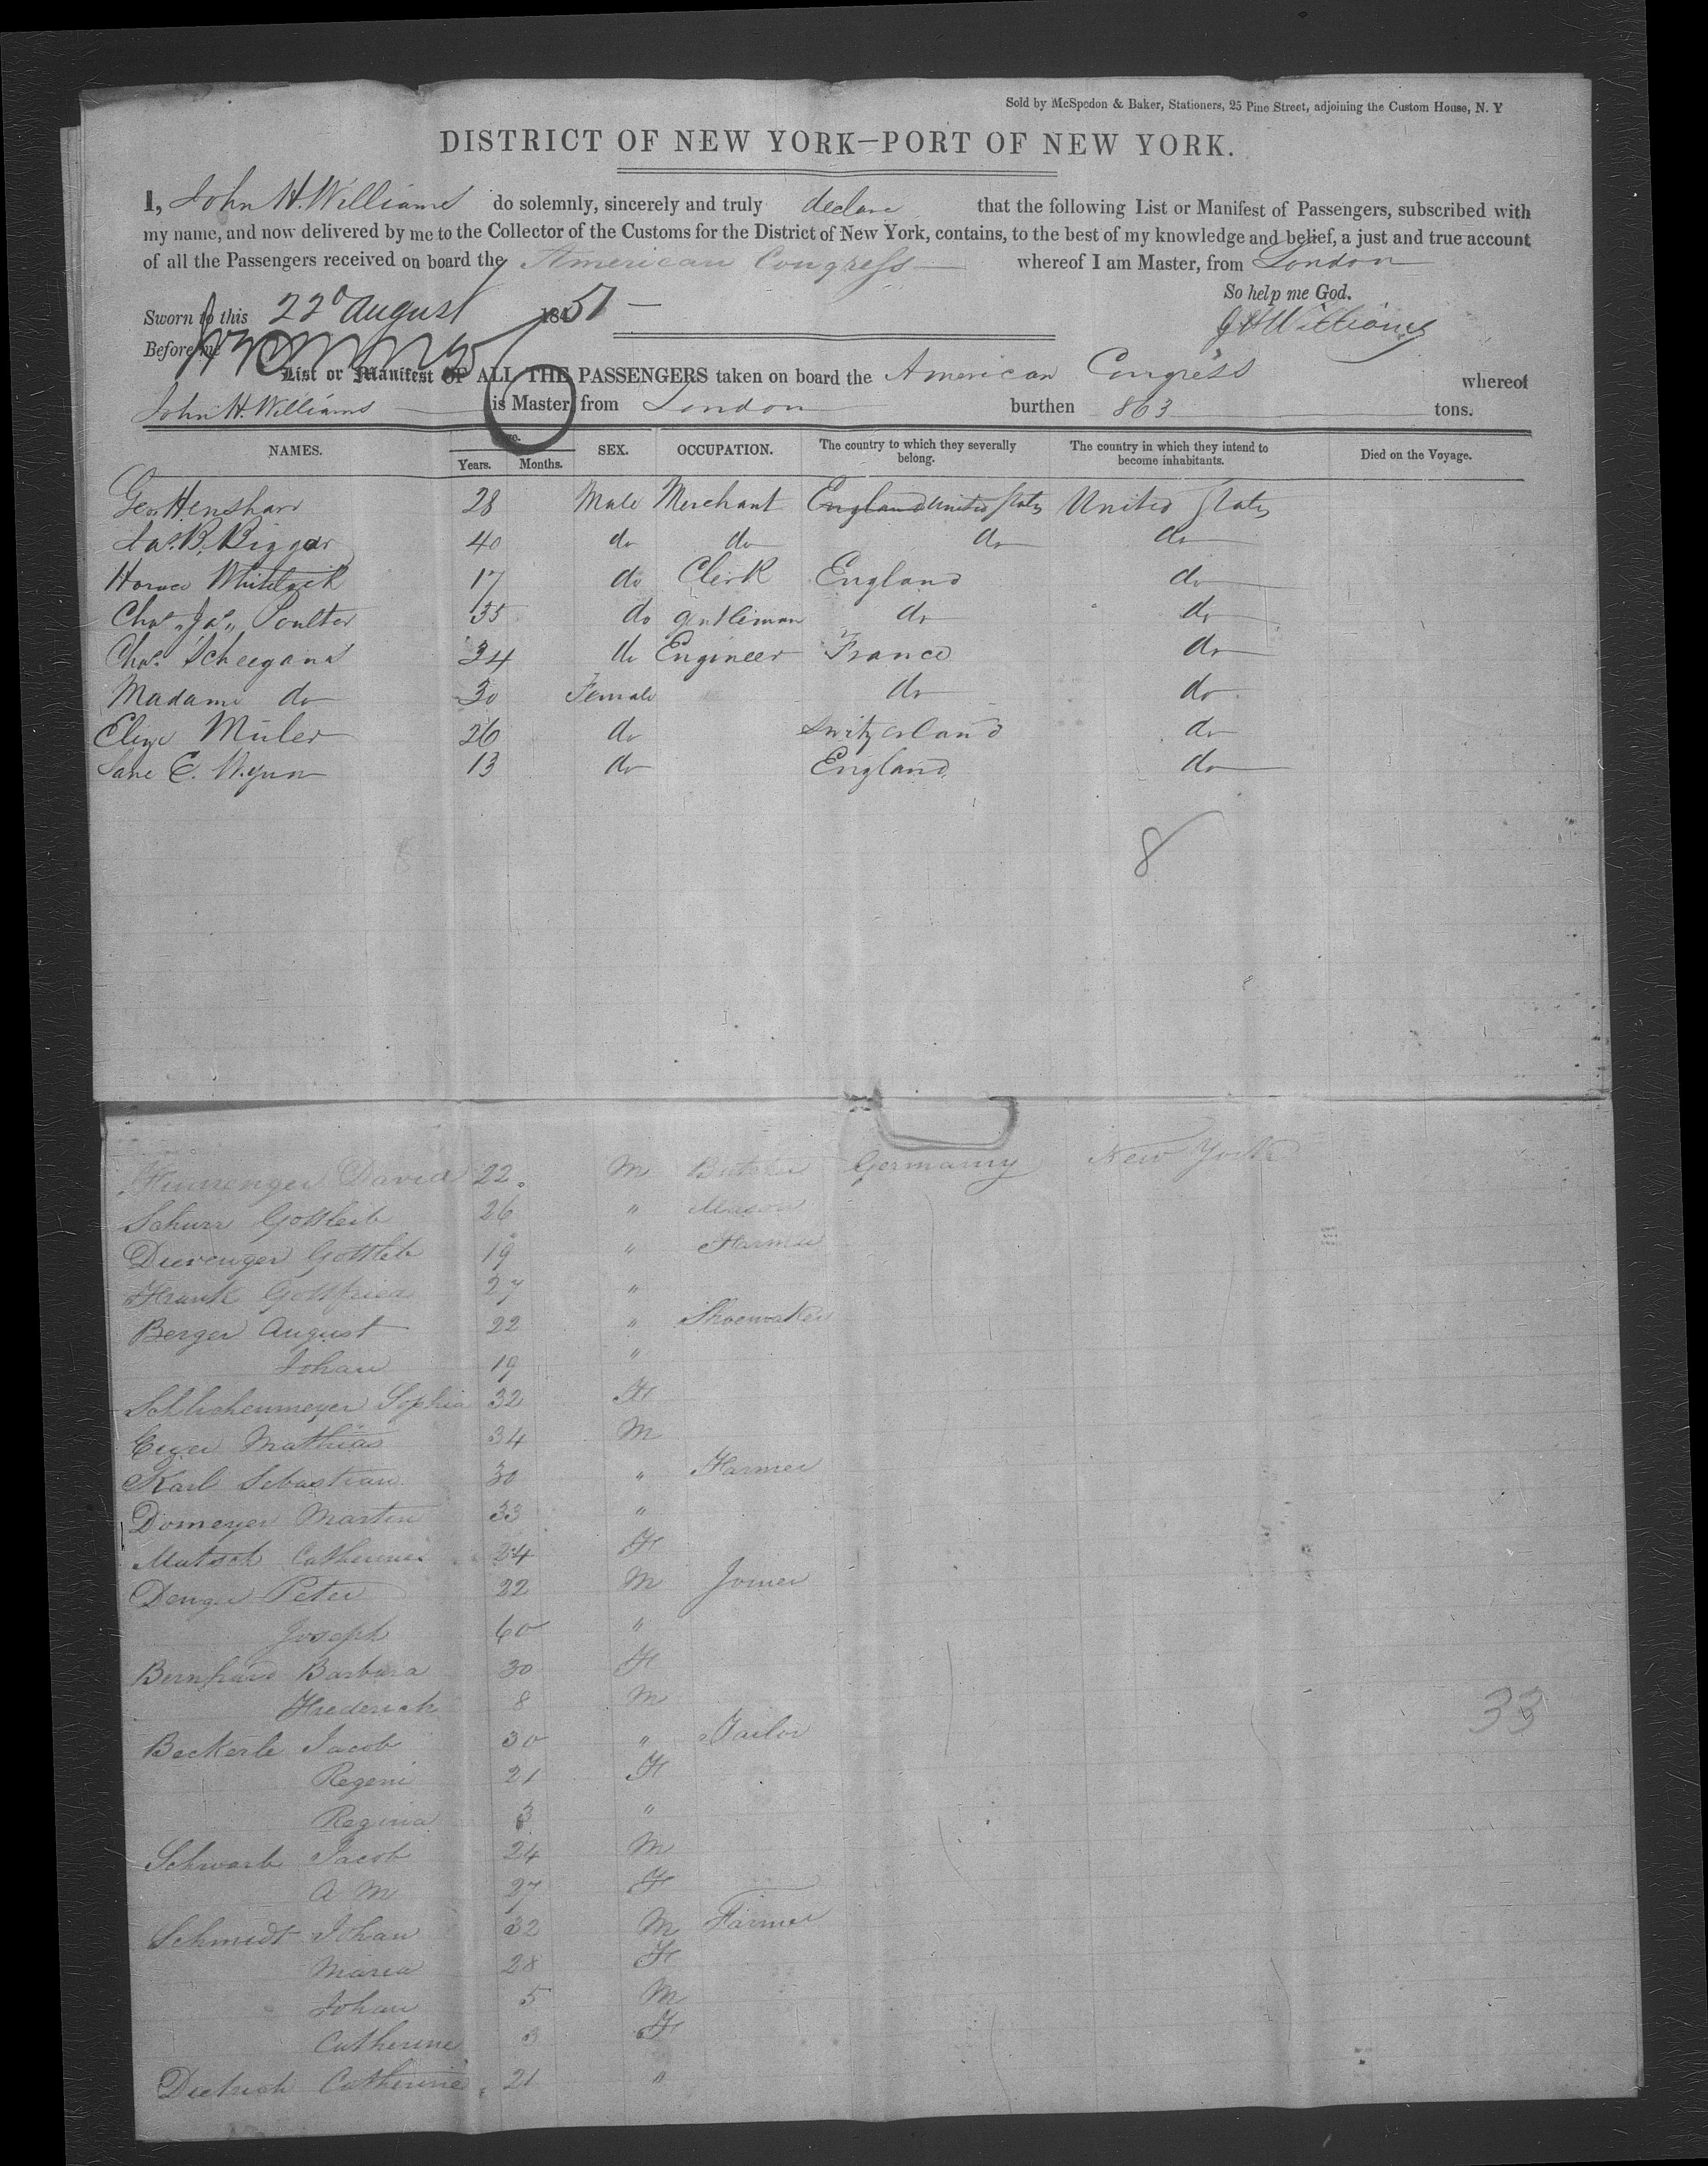 Sold by McSpedon & Baker, Stationers, 25 Pine Street, adjoining the Custom House, N. Y
DISTRICT OF NEW YORK—PORT OF NEW YORK.
I, John H. Williams do solemnly, sincerely and truly declare that the following List or Manifest of Passengers, subscribed with
my name, and now delivered by me to the Collector of the Customs for the District of New York, contains, to the best of my knowledge and belief, a just and true account
of all the Passengers received on board the American Congress whereof I am Master, from London
So help me God.
Sworn to this 22d August 1851
J H Williams
Before me
List or Manifest OF ALL THE PASSENGERS taken on board the American Congress whereof
John H. Williams is Master, from London burthen 863 tons.
NAMES. Years. Months. SEX. OCCUPATION. The country to which they severally belong. The country in which they intend to become inhabitants. Died on the Voyage.
Geo Henshaw 28 Male Merchant England United States United States
Jas. B. Biggar 40 do do do do
Horace Whitlock 17 do Clerk England do
Chas. Jas. Poulter 35 do gentleman do do
Chas. Scheegans 34 do Engineer France do
Madame do 30 Female do do
Elize Müler 26 do Switzerland do
Jane E. Wynn 13 do England do
8
David 22 M Butcher Germany New York
Schurr Gottleib 26 " Mason
Gottleb 19 " Farmer
Frank Gottfried 27 "
Berger August 22 " Shoemaker
Johan 19 "
Sophia 32 F
Mathias 34 M
Karl Sebastian 30 " Farmer
Domeyer Martin 33 "
Matsch Catherine 24 F
Denger Peter 22 M Joiner
Joseph 60 "
Bernhard Barbara 30 F
Frederick 8 M
33
Beckerle Jacob 30 " Tailor
Regeni 21 F
Regina 3 "
Schwarb Jacob 24 M
A M 27 F
Schmidt Johan 32 M Farmer
Maria 28 F
Johan 5 M
Catherine 3 F
Dietrich Catherine 21 "